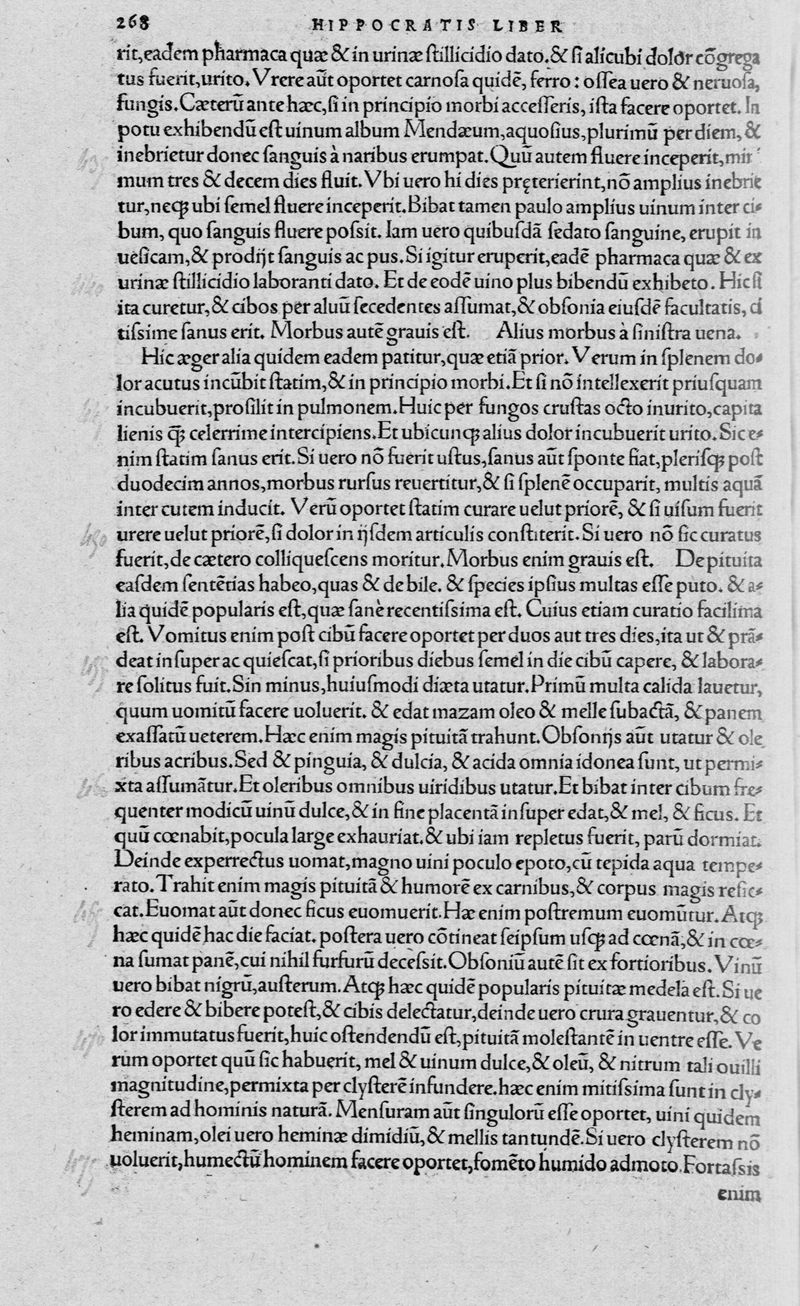 268 HIPPOCRATIS LIBER
rit,eadem pharmaca quæ & in urinæ ſtillicidio dato.& ſi alicubi dolor cõgrega
tus fuerit,urito. Vrere aũt oportet carnoſa quidẽ, ferro: oſſea uero & neruoſa,
fungis. Cæterũ ante hæc,ſi in principio morbi acceſſeris, iſta facere oportet. In
potu exhibendũ eſt uinum album Mendæum,aquoſius,plurimũ per diem, &
inebrietur donec ſanguis à naribus erumpat. Quũ autem fluere inceperit,mi
mum tres & decem dies fluit. Vbi uero hi dies pręterierint,nõ amplius inebrie
tur,neqꝫ ubi ſemel fluere inceperit. Bibat tamen paulo amplius uinum inter ci⸗
bum, quo ſanguis fluere poſsit. Iam uero quibuſdã ſedato ſanguine, erupit in
ueſicam,& prodijt ſanguis ac pus. Si igitur eruperit,eadẽ pharmaca quæ & ex
urinæ ſtillicidio laboranti dato. Et de eodẽ uino plus bibendũ exhibeto. Hic ſi
ita curetur,& cibos per aluũ ſecedentes aſſumat,& obſonia eiuſdẽ facultatis, ci
tiſsime ſanus erit. Morbus autẽ grauis eſt. Alius morbus à ſiniſtra uena.
Hic æger alia quidem eadem patitur,quæ etiã prior. Verum in ſplenem do⸗
lor acutus incũbit ſtatim,& in principio morbi. Et ſi nõ intellexerit priuſquam
incubuerit,proſilit in pulmonem. Huic per fungos cruſtas octo inurito,capita
lienis ꝙ̃ celerrime intercipiens. Et ubicunqꝫ alius dolor incubuerit urito. Sic e⸗
nim ſtatim ſanus erit. Si uero nõ fuerit uſtus,ſanus aũt ſponte fiat,pleriſqꝫ poſt
duodecim annos,morbus rurſus reuertitur,& ſi ſplenẽ occuparit, multis aquã
inter cutem inducit. Verũ oportet ſtatim curare uelut priorẽ, & ſi uiſum fuerit
urere uelut priorẽ,ſi dolor in ijſdem articulis conſtiterit. Si uero nõ ſic curatus
fuerit,de cætero colliqueſcens moritur. Morbus enim grauis eſt. De pituita
eaſdem ſentẽtias habeo,quas & de bile. & ſpecies ipſius multas eſſe puto. & a⸗
lia quidẽ popularis eſt,quæ ſanè recentiſsima eſt. Cuius etiam curatio facilima
eſt. Vomitus enim poſt cibũ facere oportet per duos aut tres dies,ita ut & prã⸗
deat inſuper ac quieſcat,ſi prioribus diebus ſemel in die cibũ capere, & labora⸗
re ſolitus fuit. Sin minus,huiuſmodi diæta utatur. Primũ multa calida lauetur,
quum uomitũ facere uoluerit. & edat mazam oleo & melle ſubactã, & panem
exaſſatũ ueterem. Hæc enim magis pituitã trahunt. Obſonijs aũt utatur & ole
ribus acribus. Sed & pinguia, & dulcia, & acida omnia idonea ſunt, ut permi⸗
xta aſſumãtur. Et oleribus omnibus uiridibus utatur. Et bibat inter cibum fre⸗
quenter modicũ uinũ dulce,& in fine placentã inſuper edat,& mel, & ficus. Et
quũ cœnabit,pocula large exhauriat.& ubi iam repletus fuerit, parũ dormiat.
Deinde experrectus uomat,magno uini poculo epoto,cũ tepida aqua tempe⸗
rato. Trahit enim magis pituitã & humorẽ ex carnibus,& corpus magis reſic⸗
cat. Euomat aũt donec ficus euomuerit. Hæ enim poſtremum euomũtur. Atqꝫ
hæc quidẽ hac die faciat. poſtera uero cõtineat ſeipſum uſqꝫ ad cœnã,& in cœ⸗
na ſumat panẽ,cui nihil furfurũ deceſsit. Obſoniũ autẽ ſit ex fortioribus. Vinũ
uero bibat nigrũ,auſterum. Atqꝫ hæc quidẽ popularis pituitæ medela eſt. Si ue
ro edere & bibere poteſt,& cibis delectatur,deinde uero crura grauentur,& co
lor immutatus fuerit,huic oſtendendũ eſt,pituitã moleſtantẽ in uentre eſſe. Ve
rum oportet quũ ſic habuerit, mel & uinum dulce,& oleũ, & nitrum tali ouilli
magnitudine,permixta per clyſterẽ infundere. hæc enim mitiſsima ſunt in cly⸗
ſterem ad hominis naturã. Menſuram aũt ſingulorũ eſſe oportet, uini quidem
heminam,olei uero heminæ dimidiũ,& mellis tantundẽ. Si uero clyſterem nõ
uoluerit,humectũ hominem facere oportet,fomẽto humido admoto. Fortaſsis
enim